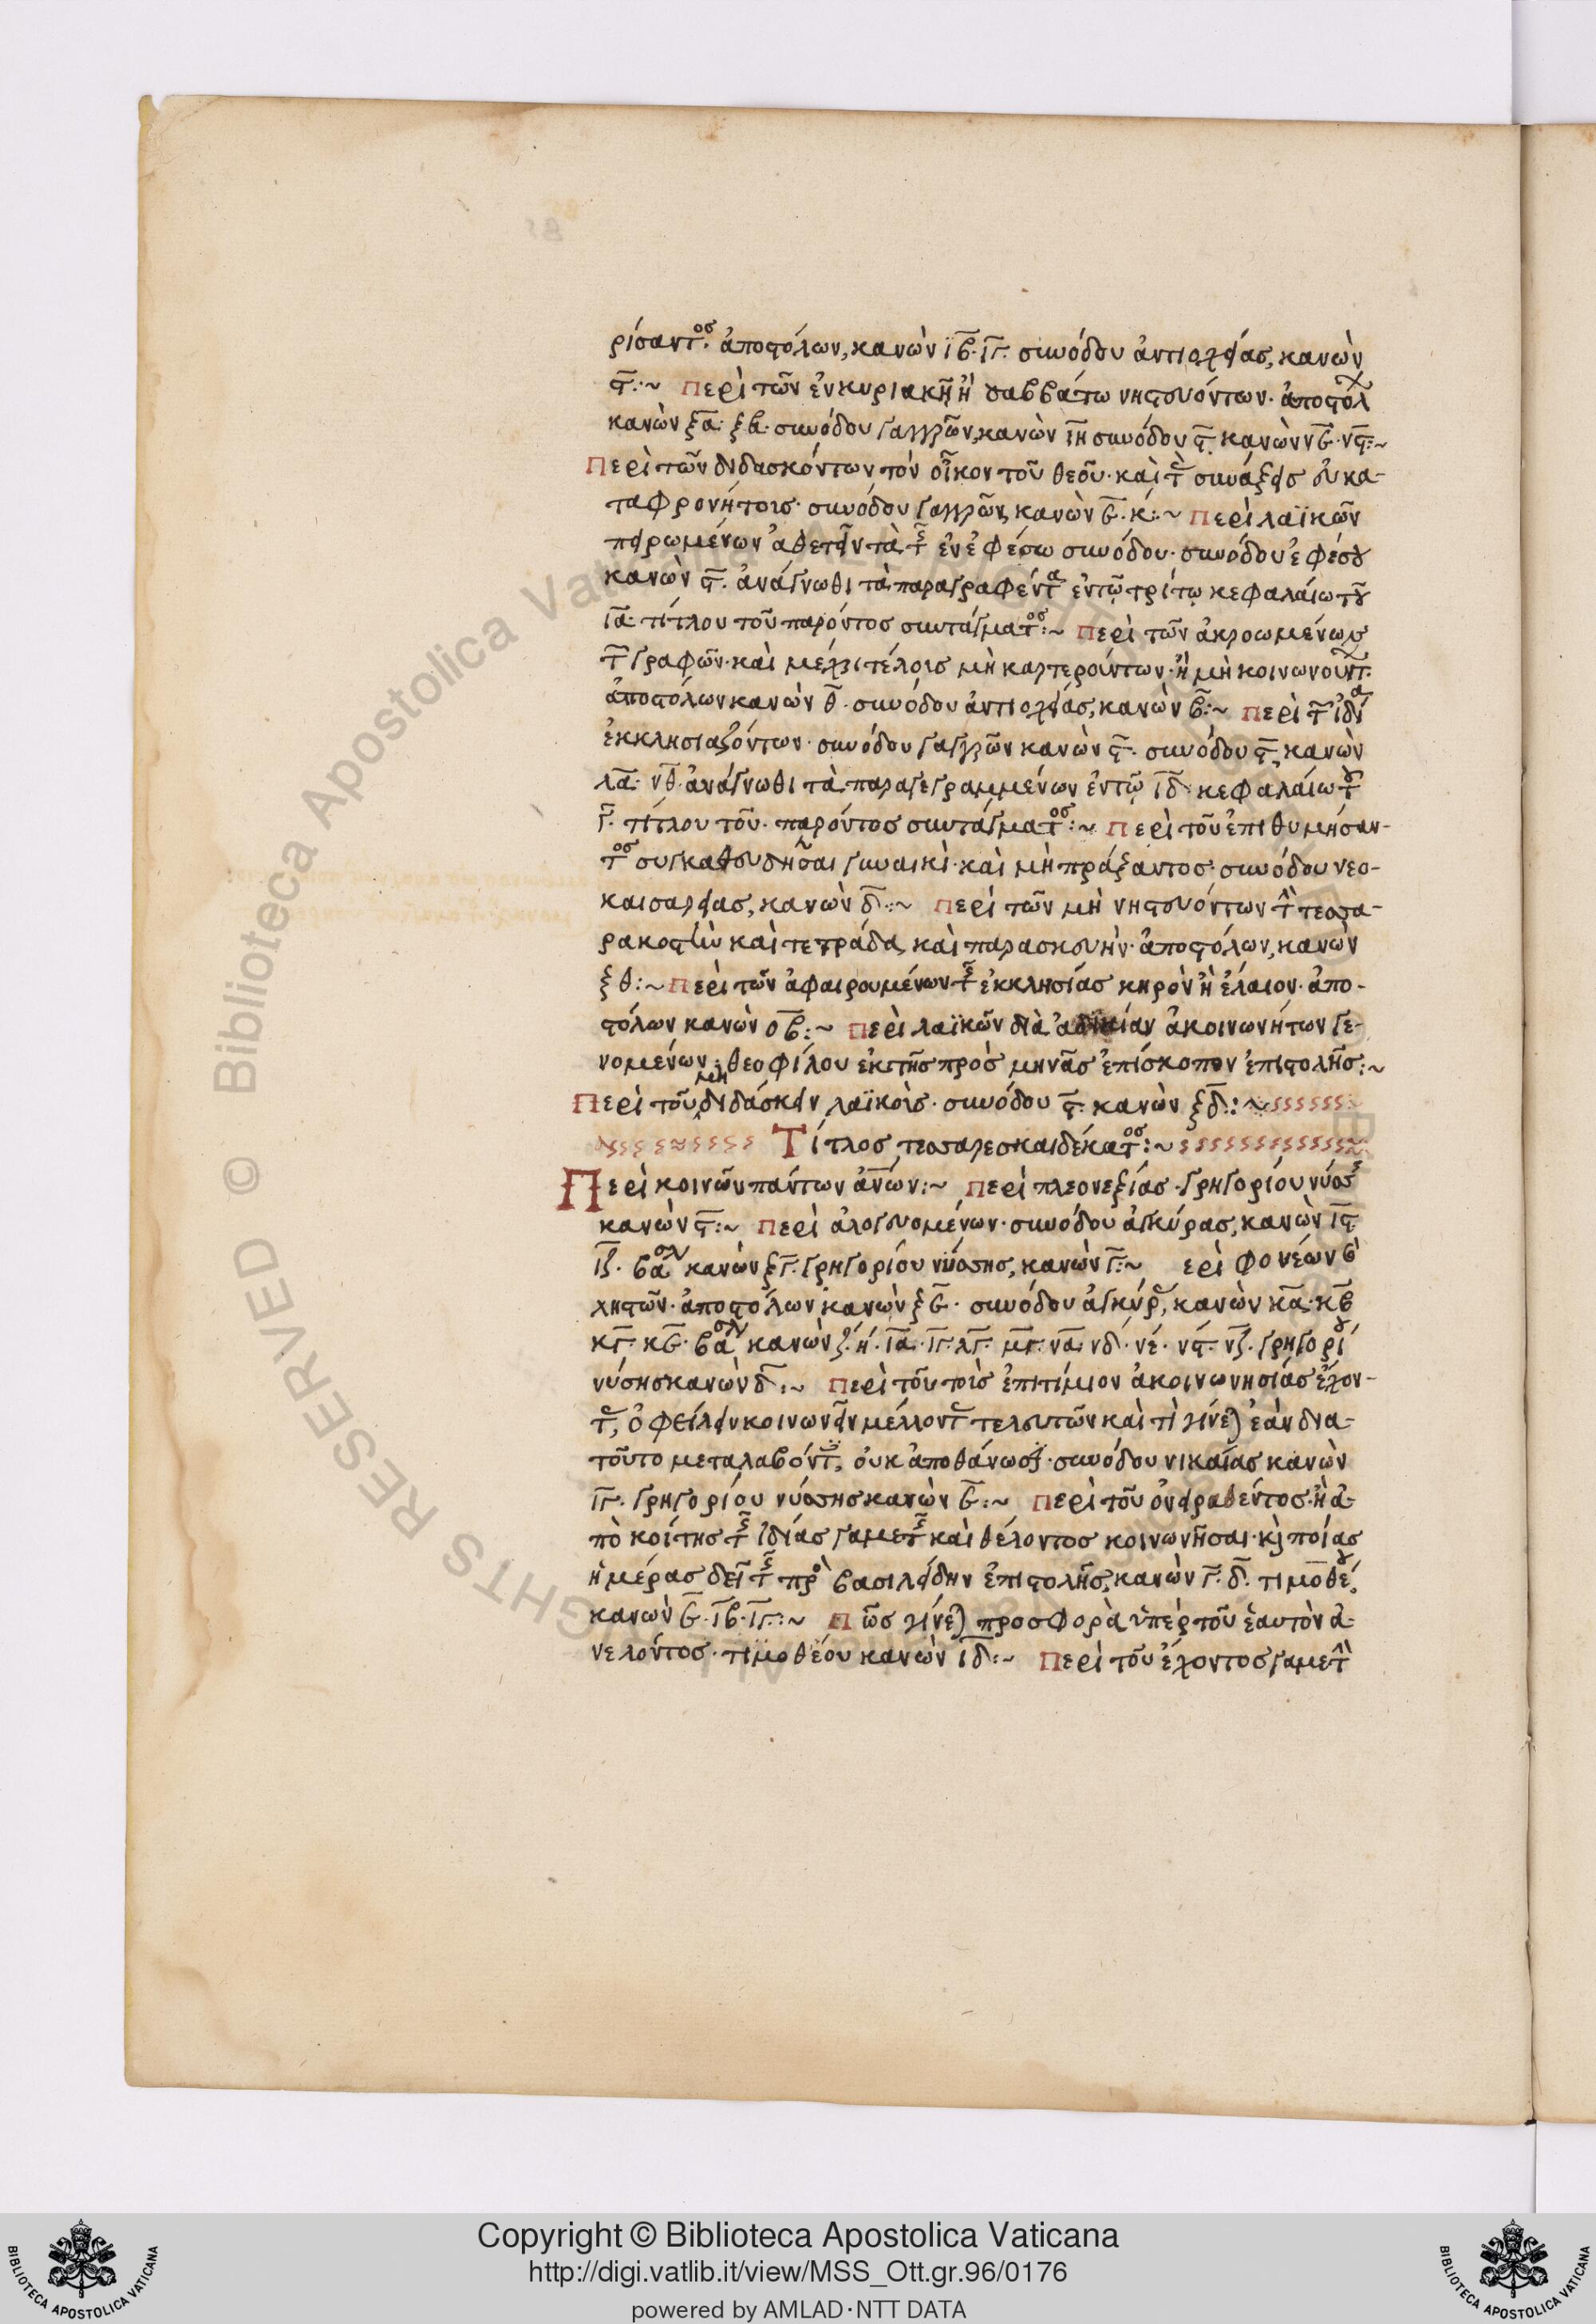 ρίσαντος. ἀποστόλων, κανὼν ιβ. ιγ. συνόδου ἀντιοχείας, κανὼν
ϛ:~ Περὶ τῶν ἐν κυριακῆ ἢ σαββάτω νηστευόντων. ἀποστόλ
κανὼν ξα. ξβ. συνόδου γαγγρῶν, κανὼν ιη συνόδου ϛ. κανὼν νε. νϛ:~
Περὶ τῶν διδασκόντων τὸν οἶκον τοῦ θεοῦ. καὶ τὰς συνάξεις εὐκα-
ταφρονήτοις. συνόδου γαγγρῶν, κανὼν ε. κ:~ Περὶ λαϊκῶν
πειρωμένων ἀθετεῖν τὰ τῆς ἐν ἐφέσω συνόδου. συνόδου ἐφέσου
κανὼν ϛ. ἀνάγνωθι τὰ παραγραφέντα ἐν τῷ τρίτῳ κεφαλαίω τοῦ
ια τίτλου τοῦ παρόντος συντάγματος:~ Περὶ τῶν ἀκροωμένων
τῶν γραφῶν. καὶ μέχρι τέλους μὴ καρτερούντων. ἢ μὴ κοινωνούντ.
ἀποστόλων κανὼν θ. συνόδου ἀντιοχείας, κανὼν β:~ Περὶ τῶν ἰδία
ἐκκλησιαζόντων. συνόδου γαγγρῶν κανὼν ϛ. συνόδου ϛ, κανὼν
λα. νθ. ἀνάγνωθι τὰ παραγεγραμμένων ἐν τῷ ιδ. κεφαλαίω τοῦ
γ. τίτλου τοῦ. παρόντος συντάγματος:~ Περὶ τοῦ ἐπιθυμήσαν-
τος συγκαθευδῆσαι γυναικὶ. καὶ μὴ πράξαντος. συνόδου νεο-
καισαρείας, κανὼν δ:~ Περὶ τῶν μὴ νηστευόντων τὴν τεσσα-
ρακοστὴν καὶ τετράδα, καὶ παρασκευὴν. ἀποστόλων, κανὼν
ξθ:~ Περὶ τῶν ἀφαιρουμένων τῆς ἐκκλησίας κηρὸν ἢ ἔλαιον. ἀπο-
στόλων κανὼν οβ:~ Περὶ λαϊκῶν διὰ ἀδικίαν ἀκοινωνήτων γε-
νομένων. θεοφίλου ἐκ τῆς πρὸς μηνᾶν ἐπίσκοπον ἐπιστολῆς:~
Περὶ τοῦ μὴ διδάσκειν λαϊκοὺς. συνόδου ϛ. κανὼν ξδ:~
Τίτλος τεσσαρεσκαιδέκατος:~
Περὶ κοινῶν πάντων ἀνων:~ Περὶ πλεονεξίας. γρηγορίου νύσσης
κανὼν ϛ:~ Περὶ ἀλογευομένων. συνόδου ἀγκύρας, κανὼν ιϛ
ιζ. βασιλ κανὼν ξγ. γρηγορίου νύσσης, κανὼν γ:~ ερὶ φονέων ἑ
χηστῶν. ἀποστόλων κανὼν ξε. συνόδου ἀγκύρας, κανὼν κα. κβ
κγ. κε. βασιλ κανὼν ζ. η. ια. ιγ. λγ. μγ. να. νδ. νε. νϛ. νζ. γρηγορίου
νύσης κανὼν δ:~ Περὶ τοῦ τοὺς ἐπιτίμιον ἀκοινωνησίας ἔχον-
τας, ὀφείλειν κοινωνεῖν μέλλοντας τελευτῶν καὶ τὶ γίνεται ἐὰν δια-
τοῦτο μεταλαβόντες, οὐκ ἀποθάνωσι. συνόδου νικαίας κανὼν
ιγ. γρηγορίου νύσσης κανὼν ε:~ Περὶ τοῦ ὀνειραθέντος. ἢ ἀ-
πὸ κοίτης τῆς ἰδίας γαμετῆς καὶ θέλοντος κοινωνῆσαι. καὶ ποίας
ἡμέρας δεῖ τῆς πρὸ βασιλείδην ἐπιστολῆς, κανὼν γ. δ. τιμοθέου,
κανὼν ε. ιβ. ιγ:~ Πῶς γίνεται προσφορὰ ὑπὲρ τοῦ ἑαυτὸν ἀ-
νελόντος. τιμοθέου κανὼν ιδ:~ Περὶ τοῦ ἔχοντος γαμετὴν
Copyright © Biblioteca Apostolica Vaticana
http://digi.vatlib.it/view/MSS_Ott.gr.96/0176
powered by AMLAD·NTT DATA